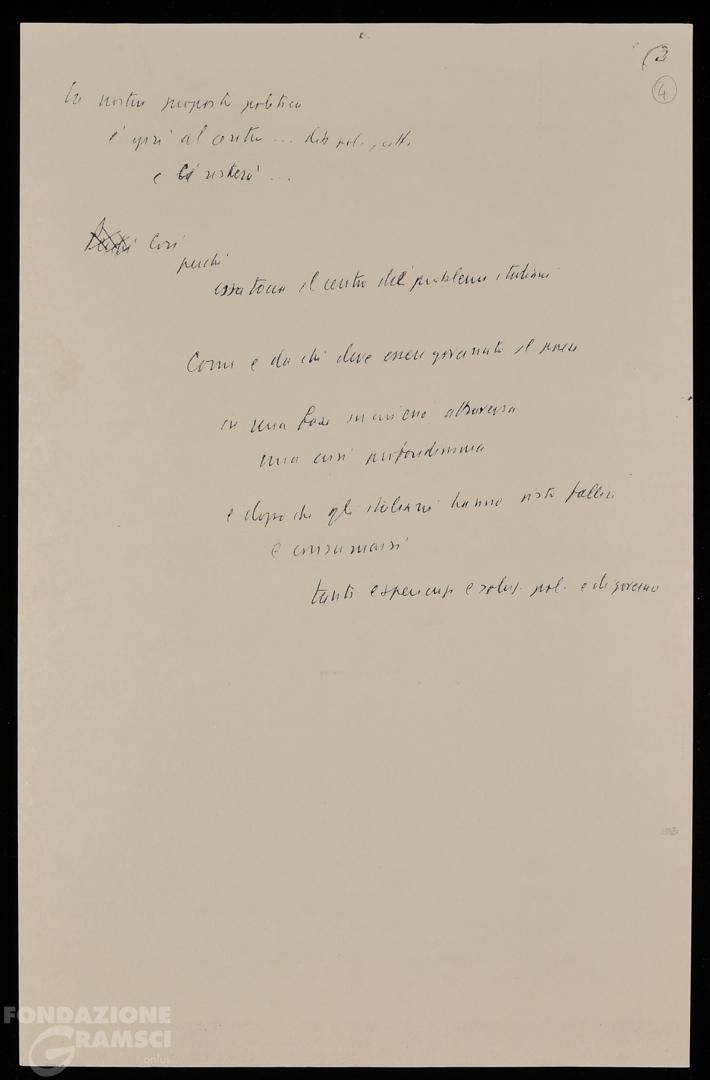 (3
4
La nostra proposta politica
è già al centro ... dib. pol.
e ci resterà ...
Così
perché
essa tocca il centro del problema italiano
Come e da chi deve essere governato il paese
in una fase in cui attraversa
una crisi profondissima
e dopo che gli italiani hanno visto fallire
e consumarsi
tanti esperienze e soluz. pol. e di governo
FONDAZIONE
GRAMSCI
onlus